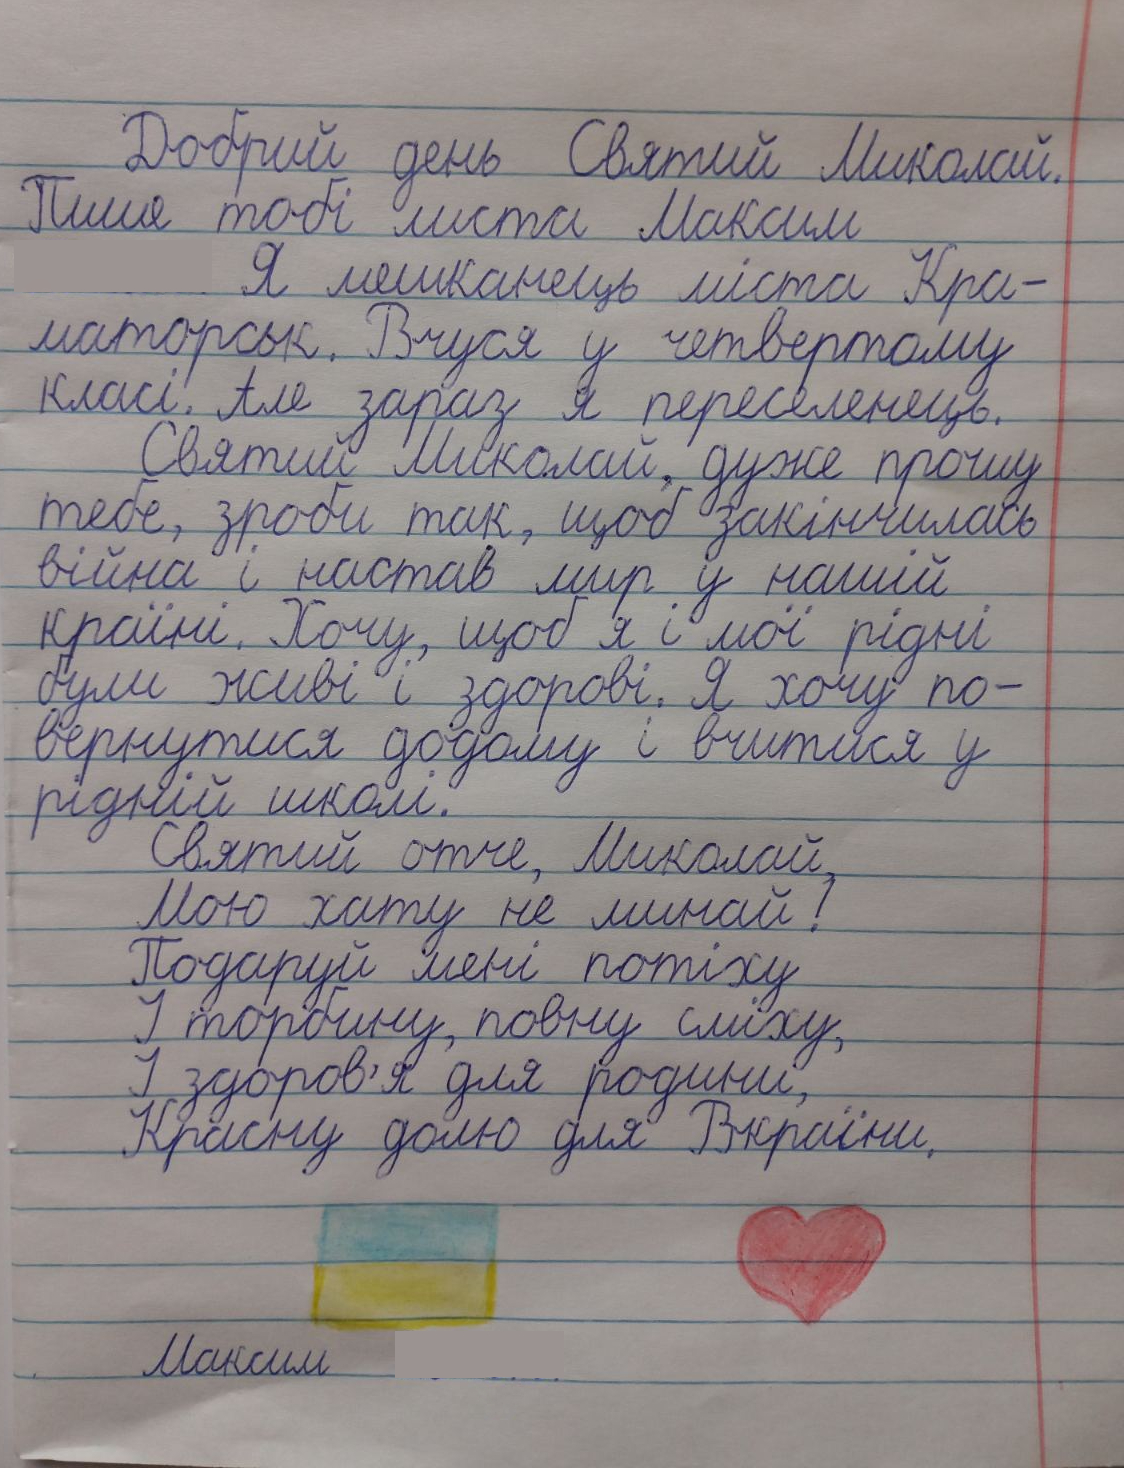 Добрий день Святий Миколай.
Пише тобі листа Максим
Я мешканець міста Кра-
маторськ. Вчуся у четвертому
класі. Але зараз я переселенець.
Святий Миколай, дуже прошу
тебе, зроби так, щоб закінчилась
війна і настав мир у нашій
країні. Хочу, щоб я і мої рідні
були живі і здорові. Я хочу по-
вернутися додому і вчитися у
рідній школі.
Святий отче, Миколай,
Мою хату не минай!
Подаруй мені потіху
І торбину, повну сміху,
І здоров'я для родини,
Красну долю для Вкраїни.
Максим